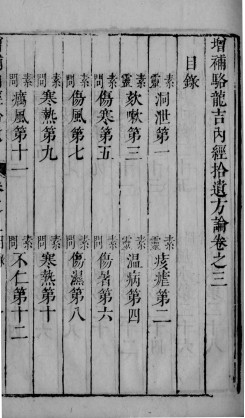 增補駱龍吉內經拾遺方論卷之三
目錄
素靈 洞泄第一 素靈 痎瘧第二
素靈 欬嗽第三 素靈 温病第四
素問 傷寒第五 素問 傷暑第六
素問 傷風第七 素問 傷濕第八
素問 寒熱第九 素問 寒熱第十
素問 癘風第十一 素問 不仁第十二